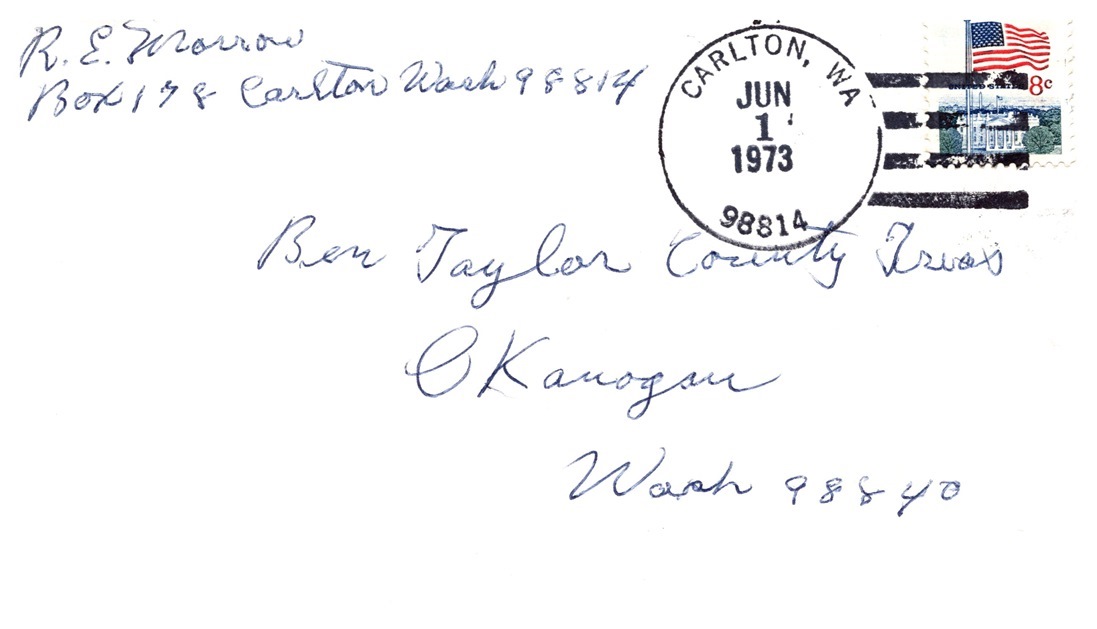 R. E. Morrow
Box 178 Carlton Wash 98814
CARLTON, WA
JUN
1
1973
98814
8c
UNITED STATES
Ben Taylor County Treas
OKanogan
Wash 98840